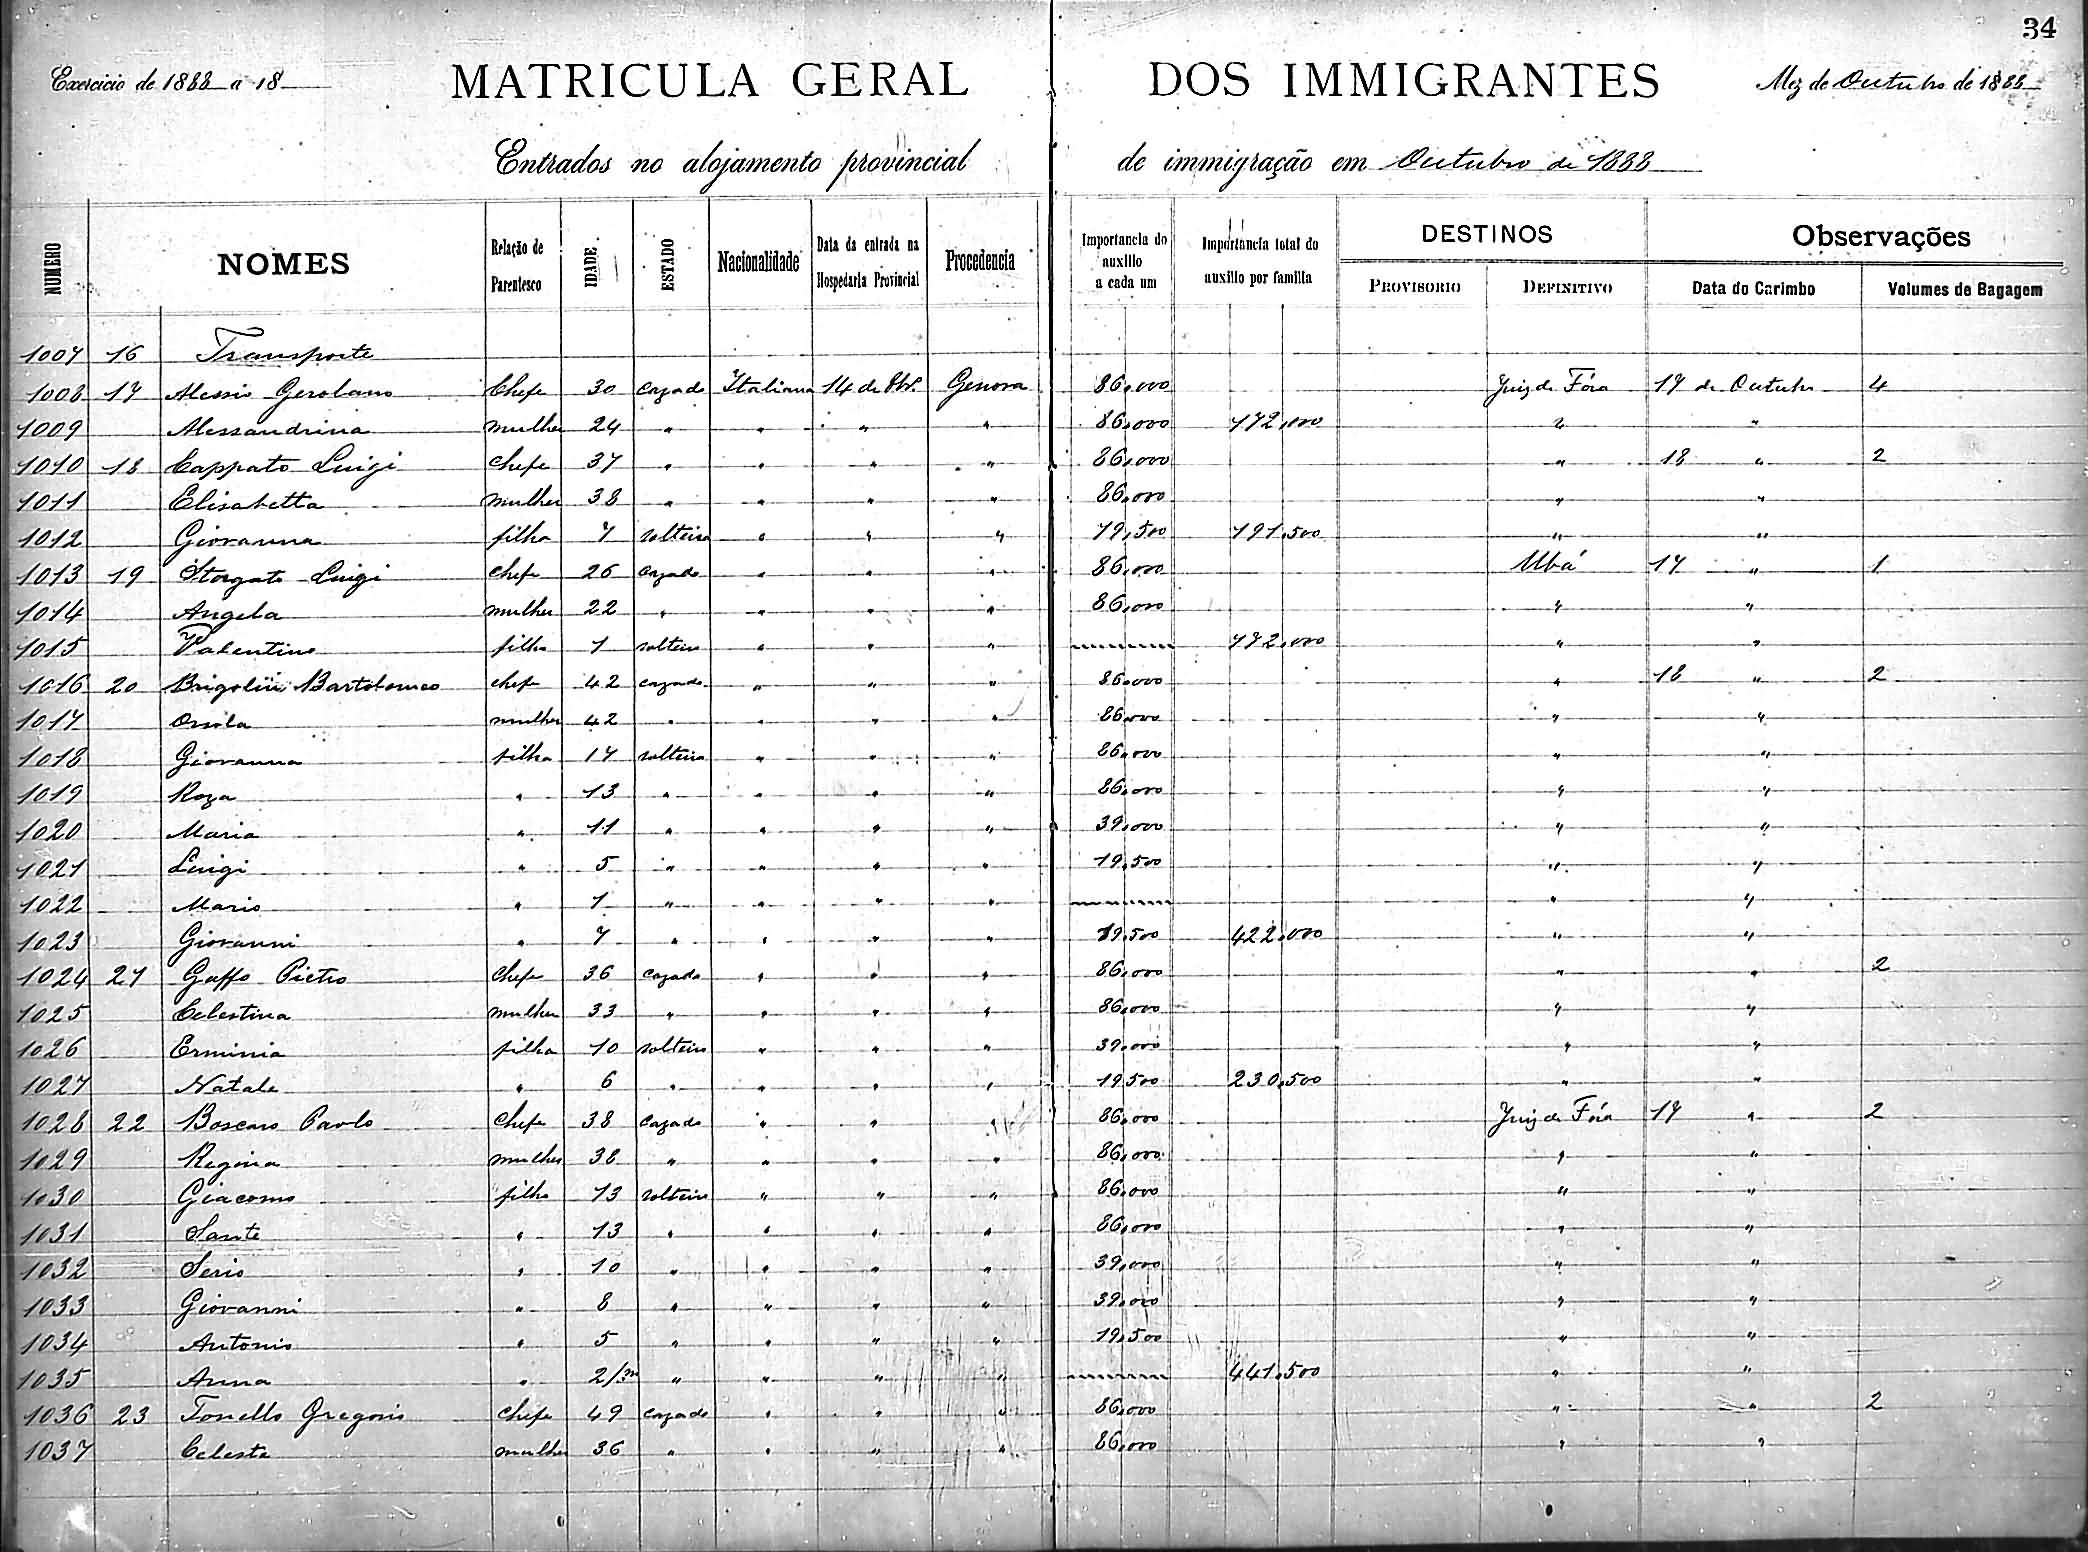 34
Exercicio de 1888 a 18
MATRICULA GERAL DOS IMMIGRANTES
Mez de Outubro de 1888
Entrados no alojamento provincial de immigração em Outubro de 1888
NUMERO NOMES Relação de Parentesco IDADE ESTADO Nacionalidade Data da entrada na Hospedaria Provincial Procedencia Importancia do auxilio a cada um Importancia total do auxilio por familia DESTINOS PROVISORIO DEFINITIVO Observações Data do Carimbo Volumes de Bagagem
1007 16 Transporte
1008 17 Alessio Gerolamo Chefe 30 cazado Italiana 14 de 8br. Genova 86,000 Juiz de Fóra 17 de Outubro 4
1009 Alessandrina mulher 24 " " " " 86,000 172,000 " "
1010 18 Cappato Luigi chefe 37 " " " " 86,000 " 18 " 2
1011 Elisabetta mulher 38 " " " " 86,000 " "
1012 Giovanna filha 7 solteira " " " 19,500 191,500 " "
1013 19 Storgato Luigi chefe 26 cazado " " " 86,000 Ubá 17 " 1
1014 Angela mulher 22 " " " " 86,000 " "
1015 Valentino filho 1 solteiro " " " 172,000 " "
1016 20 Brigolin Bartolomeo chefe 42 cazado " " " 86,000 " 18 " 2
1017 Orsola mulher 42 " " " " 86,000 " "
1018 Giovanna filha 17 solteira " " " 86,000 " "
1019 Roza " 13 " " " " 86,000 " "
1020 Maria " 11 " " " " 39,000 " "
1021 Luigi " 5 " " " " 19,500 " "
1022 Mario " 1 " " " " " "
1023 Giovanni " 7 " " " " 19,500 422,000 " "
1024 21 Gaffo Pietro chefe 36 cazado " " " 86,000 " " 2
1025 Celestina mulher 33 " " " " 86,000 " "
1026 Erminia filha 10 solteira " " " 39,000 " "
1027 Natale " 6 " " " " 19,500 230,500 " "
1028 22 Boscaro Paolo chefe 38 cazado " " " 86,000 Juiz de Fóra 17 " 2
1029 Regina mulher 38 " " " " 86,000 " "
1030 Giacomo filho 13 solteiro " " " 86,000 " "
1031 Sante " 13 " " " " 86,000 " "
1032 Serio " 10 " " " " 39,000 " "
1033 Giovanni " 8 " " " " 39,000 " "
1034 Antonio " 5 " " " " 19,500 " "
1035 Anna " 2/m " " " " 441,500 " "
1036 23 Tonello Gregorio chefe 49 cazado " " " 86,000 " " 2
1037 Celeste mulher 36 " " " " 86,000 " "